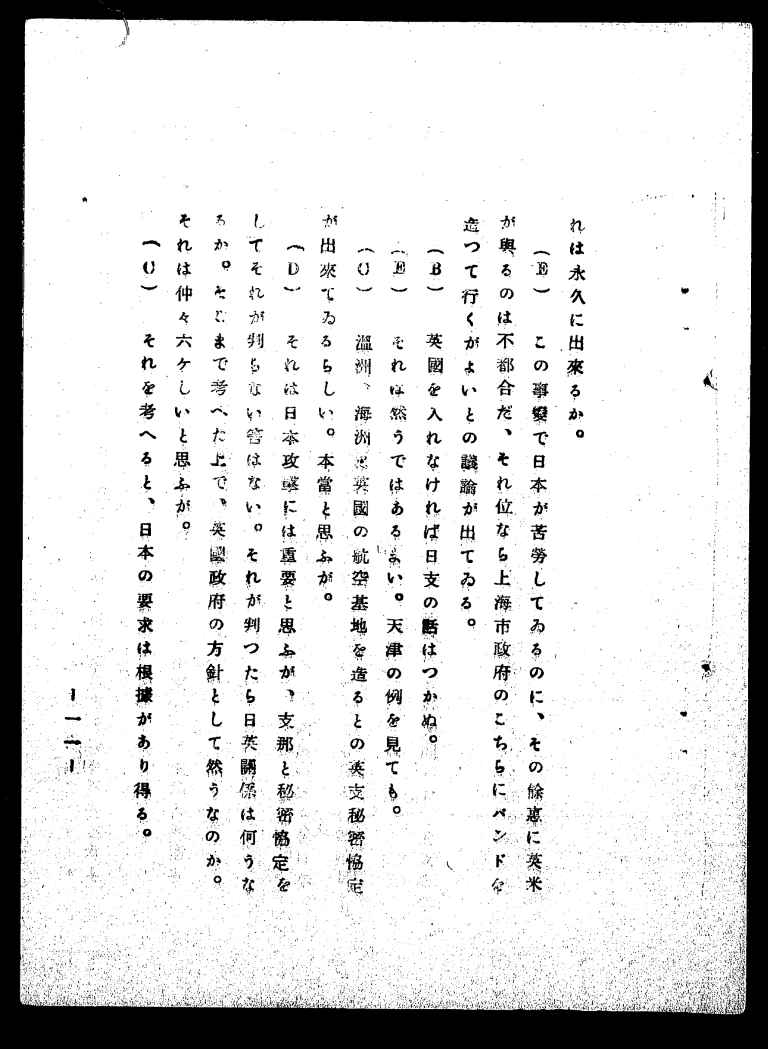 れは永久に出來るか。
(E) この事變で日本が苦勞してゐるのに、その餘惠に英米
が與るのは不都合だ、それ位なら上海市政府のこちらにバンドを
造つて行くがよいとの議論が出てゐる。
(B) 英國を入れなければ日支の話はつかぬ。
(E) それは然うではあるまい。天津の例を見ても。
(C) 溫洲、海洲に英國の航空基地を造るとの英支秘密協定
が出來てゐるらしい。本當と思ふが。
(D) それは日本攻擊には重要と思ふが、支那と秘密協定を
してそれが判らない筈はない。それが判つたら日英關係は何うな
るか。そこまで考へた上で、英國政府の方針として然うなのか。
それは仲々六ケしいと思ふが。
(C) それを考へると、日本の要求は根據があり得る。
ー一一ー